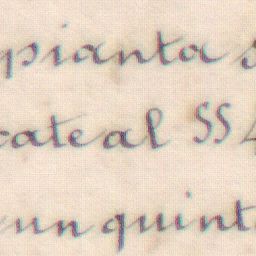 pianta
cate al SS 4
un quint